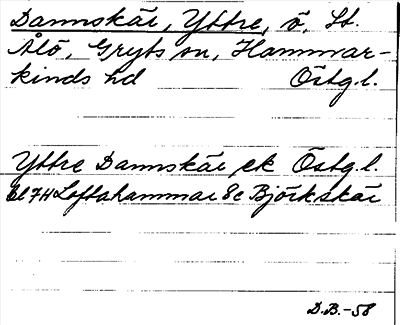 Dannskär, Yttre, ö, St.
Ålö, Gryts sn, Hammar-
kinds hd Östg.l.
Yttre Dannskär ek Östg.l.
bl 7H Loftahammar 8c Björkskär
D.B.-58